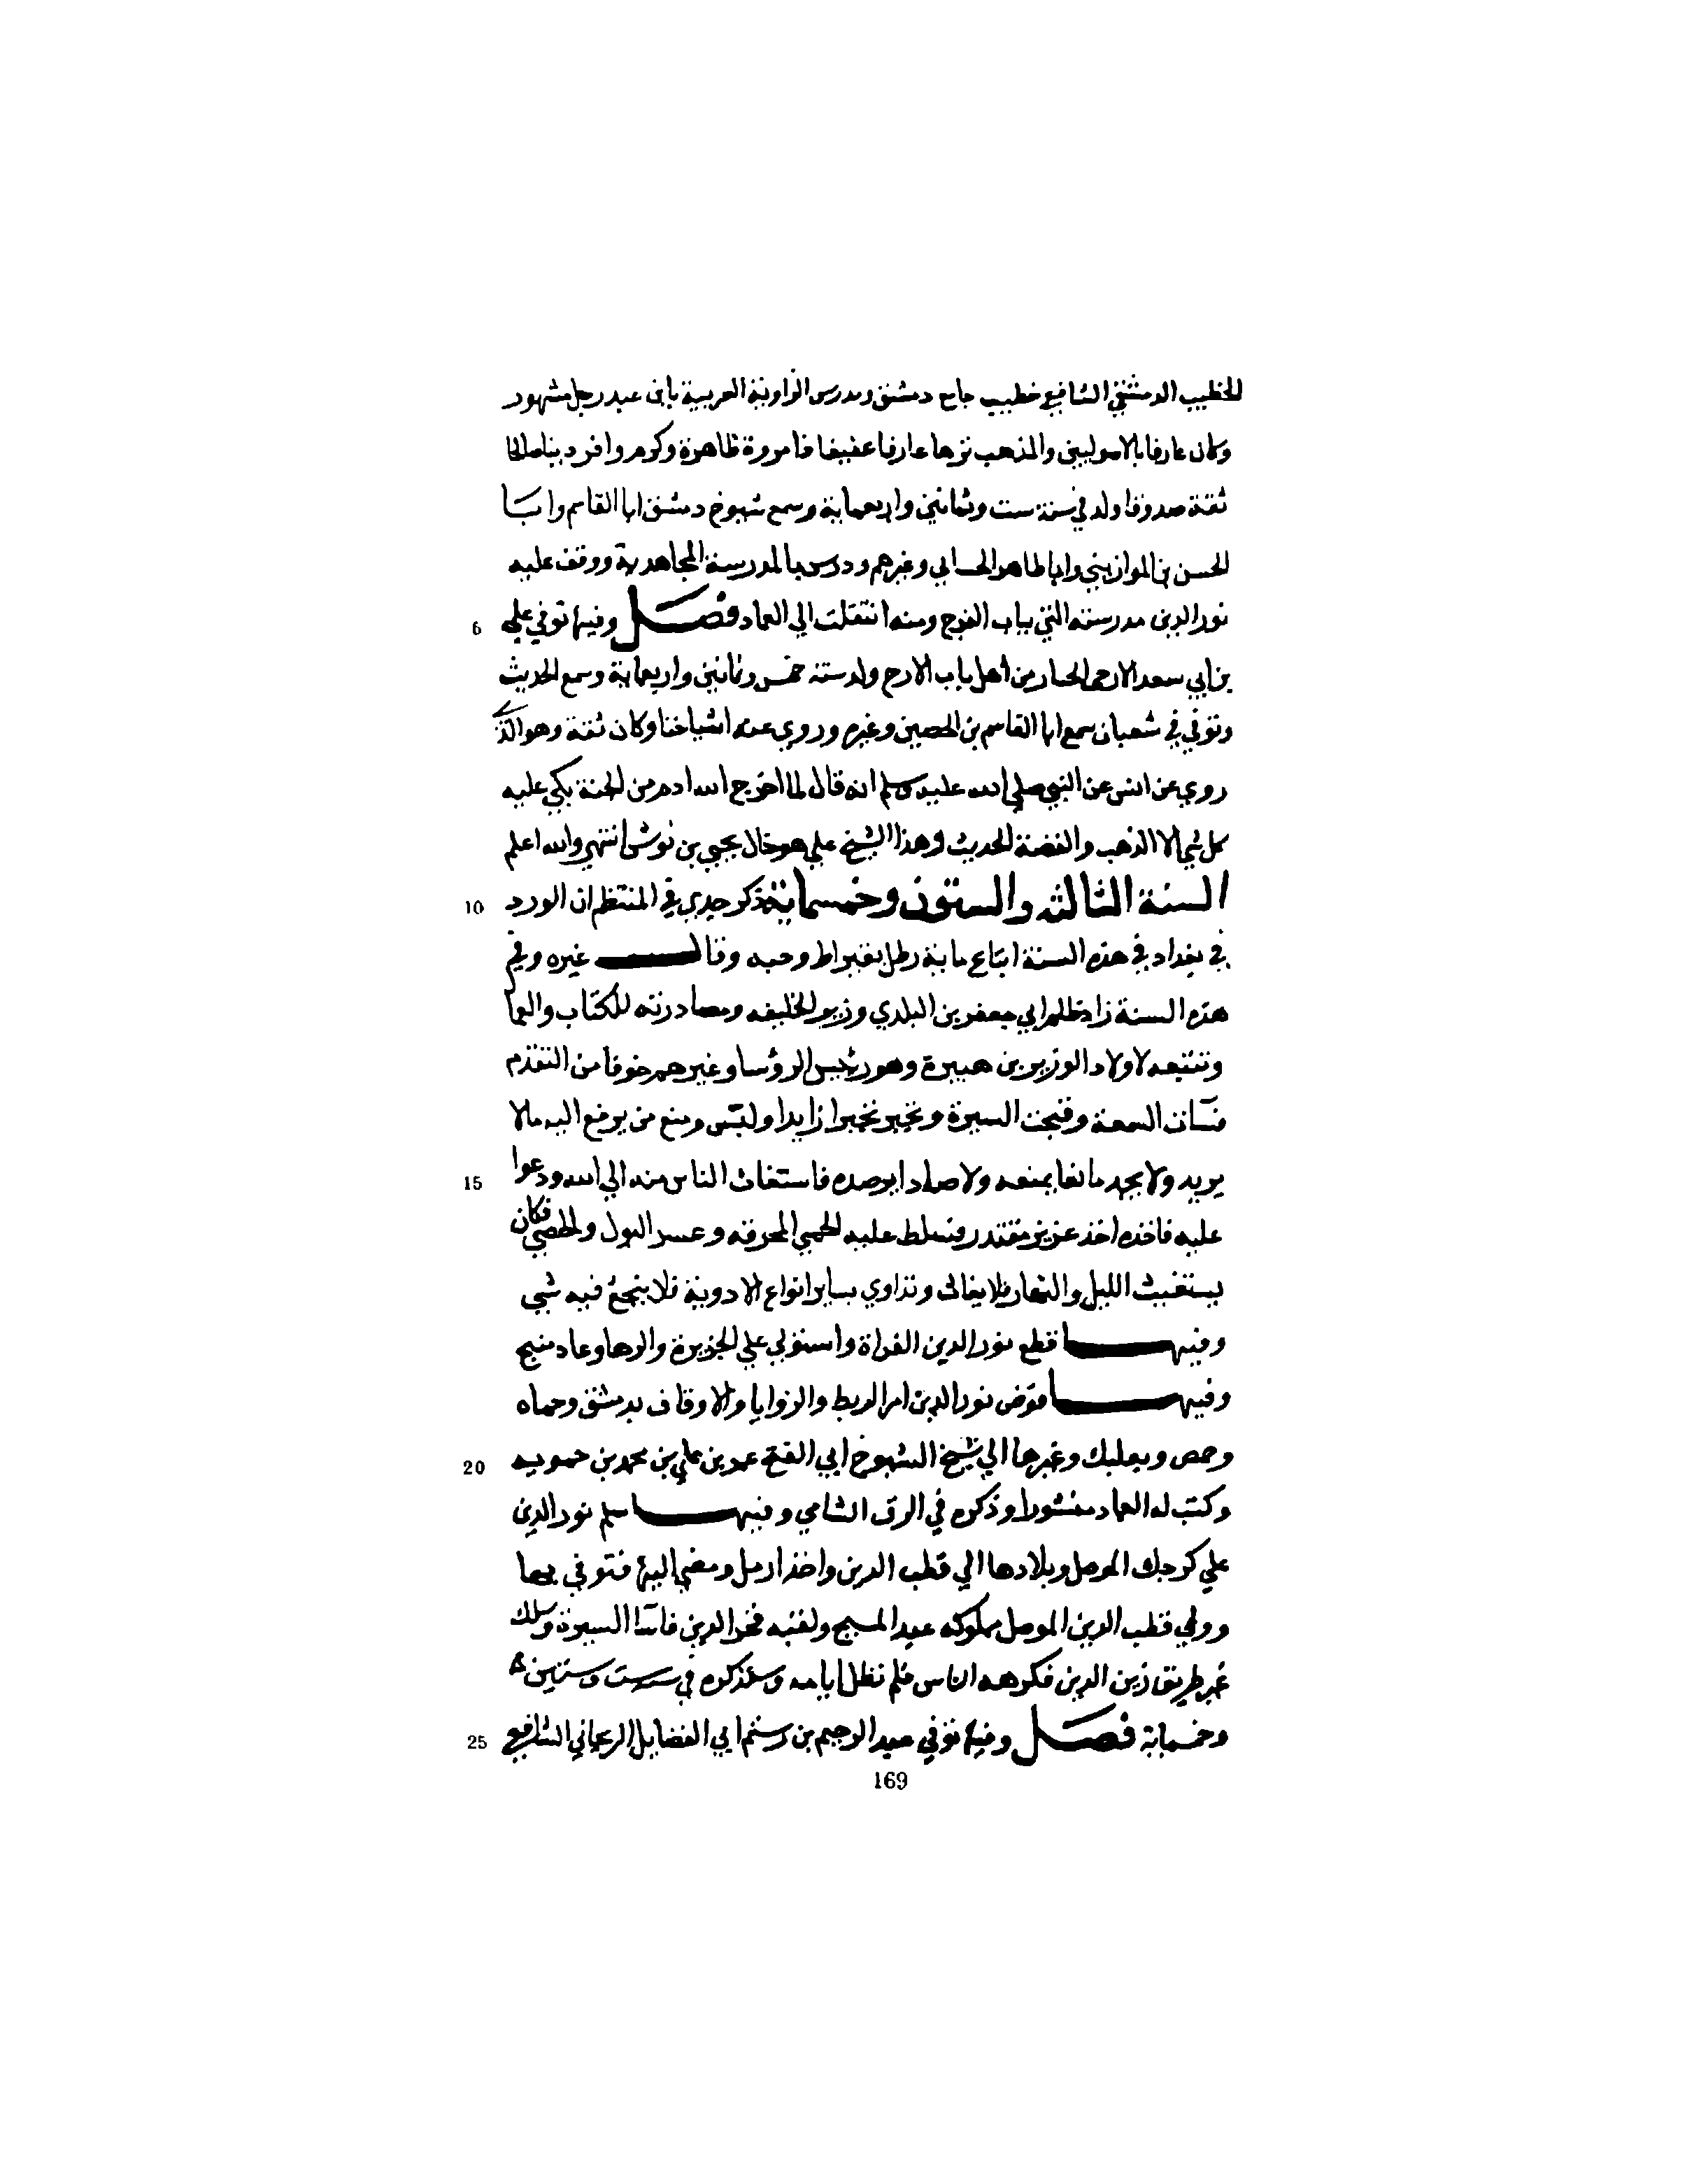 الخطيب الدمشقي الشافعي خطيب جامع دمشق ومدرس الزاوية الغربية بابن عبد رجل مشهور
وكان عارفا بالاصوليين والمذهب نزها عارفا عفيفا ذا مروة ظاهرة وكرم وافر دينا صالحا
ثقة صدوقا ولد في سنة ست وثمانين واربعماية وسمع شيوخ دمشق ابا القاسم وابا
الحسن بن الموازيني وابا طاهر الحنابي وغيرهم ودرس بالمدرسة المجاهدية ووقف عليه
نور الدين مدرسته التي بباب الفرج ومنه انتقلت الي العماد فصل وفيها توفي علي 6
بن ابي سعد الازجي الخباز من اهل باب الازج ولد سنة خمس وثمانين واربعماية وسمع الحديث
وتوفي في شعبان سمع ابا القاسم بن الحصين وغيره وروي عنه اشياخنا وكان ثقة وهو الذي
روي عن انس عن النبي صلي الله عليه وسلم انه قال لما اخرج الله ادم من الجنة بكي عليه
كل شي الا الذهب والفضة الحديث وهذا الشيخ علي هو خال يحيي بن نوش انتهي والله اعلم
السنة الثالثه والستون وخمسماية ذكر جدي في المنتظم ان الورد 10
في بغداد في هذه السنة ابتاع ماية رطل بقيراط وحبه وقال غيره وفي
هذه السنة زاد ظلم ابي جعفر بن البلدي وزير الخليفه ومصادرته للكتاب والعما
وتتبعه لاولاد الوزير بن هبيرة وهو رئيس الرؤسا وغيرهم خوفا من التقدم
فسآت السمعة وقبحت السيرة وتجبر تجبرا زايدا ولبّس ومنع من يرفع اليه مالا
يريد ولا يجد مانعا يمنعه ولا صادا يصده فاستغاث الناس منه الي الله ودعوا 15
عليه فاخذه اخذ عزيز مقتدر فسلط عليه الحمي المحرقه وعسر البول والحصي فكان
يستغيث الليل والنهار فلا يغاث وتداوي بساير انواع الادوية فلا ينجع فيه شي
وفيها قطع نور الدين الفراة واستولي علي الجزيرة والرها وعاد منبج
وفيها فوّض نور الدين امر الربط والزوايا والاوقاف بدمشق وحماه
وحمص وبعلبك وغيرها الي شيخ الشيوخ ابي الفتح عمر بن علي بن محمد بن حمويه 20
وكتب له العماد منشورا وذكره في البرق الشامي وفيها سلم نور الدين
علي كوجك الموصل وبلادها الي قطب الدين واخذ اربل ومضي اليها فتوفي بها
وولي قطب الدين الموصل مملوكه عبد المسيح ولقبه فخر الدين فاسآ السيرة وسلك
غير طريق زين الدين فكرهه الناس فلم تطل ايامه وسنذكره في سنة ست وستين
وخمسماية فصل وفيها توفي عبد الرحيم بن رستم ابي الفضايل الزنجاني الشافعي 25
169